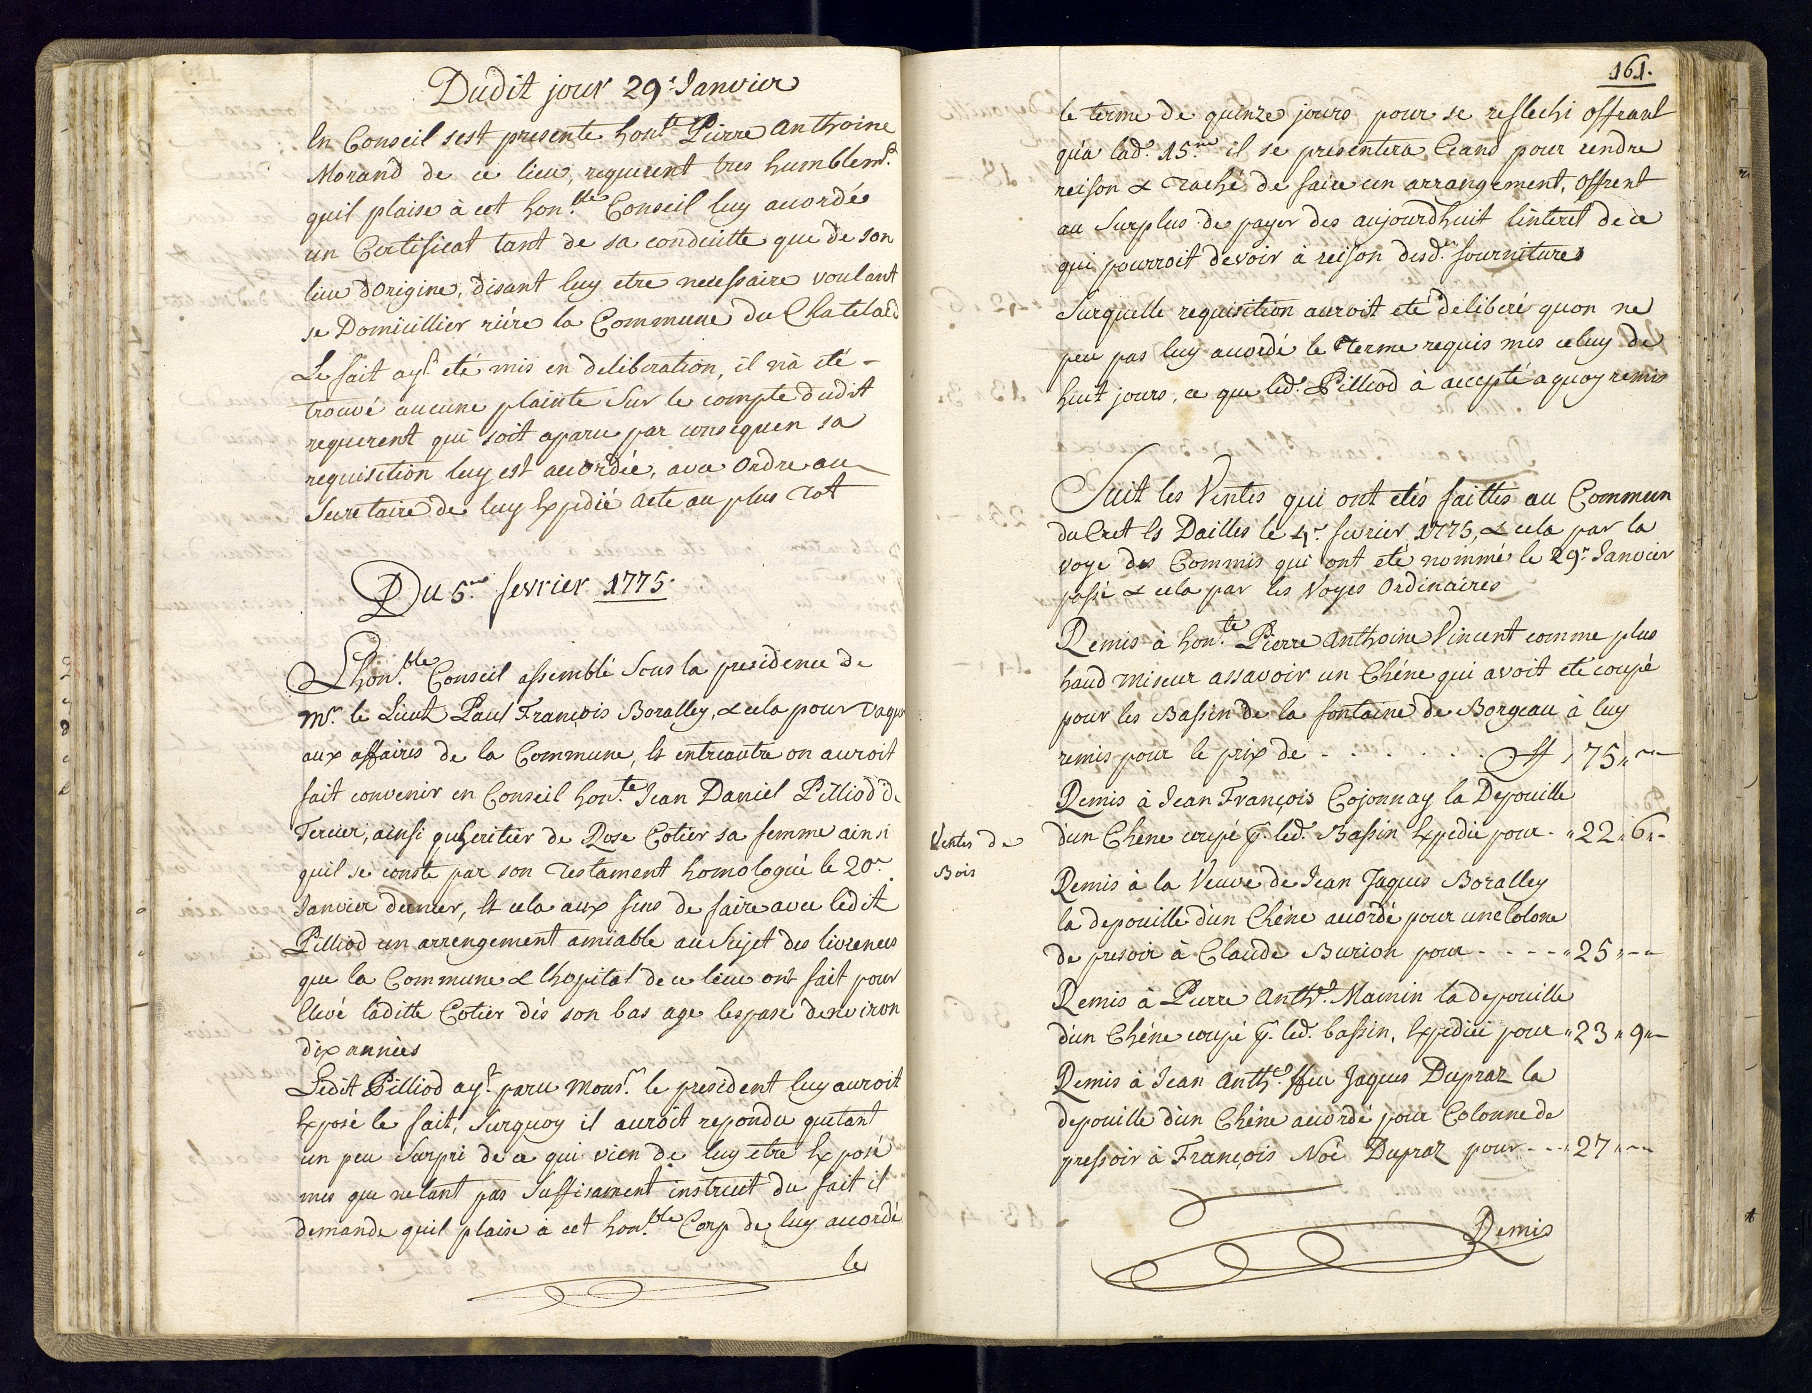 Dudit jour 29.e Janvier
En Conseil sest presente hon.te Pierre Anthoine
Morand de ce lieu, requerent tres humblem.t
quil plaise à cet hon.ble Conseil luy accordée
un Certificat tant de sa conduitte que de son
lieu dorigine, disant luy etre necessaire voulant
se Domicillier riére la Commune du Chatelard
Le fait ay.t eté mis en deliberation, il nà eté
trouvé aucune plainte sur le compte dudit
requerent qui soit aparu par consequen sa
requisition luy est accordée, avec ordre au
Secretaire de luy Expedié acte au plus tot
Du 5.me fevrier 1775.
Lhon.ble Conseil assemblé sous la presidence de
Mr. le Lieut Paul François Boralley, & cela pour vaque
aux affaires de la Commune, Et entreautre on auroit
fait convenir en Conseil hon.te Jean Daniel Pilliod de
Tercier, ainsi quheritier de Rose Cotier sa femme ainsi
quil se conste par son Testament homologué le 20.e
Janvier dernier, Et cela aux fins de faire avec ledit
Pilliod un arrengement amiable au Sujet des livrences
que la Commune & lhopital de ce lieu ont fait pour
Elevé laditte Cotier dés son bas age lespace denviron
dix années
Ledit Pilliod ay.t paru Mons.r le president luy auroit
Exposé le fait, surquoy il auroit repondu quetant
un peu surpri de ce qui vien de luy etre Exposé
mes que netant pas suffisament instruit du fait il
demande quil plaise à cet hon.ble Corp de luy accordé
le
161.
le terme de quinze jours pour se reflechi offrant
quà lad. 15.me il se presentera Ceand pour rendre
reison & taché de faire un arrangement, offrent
au surplus de payer des aujourdhuit linteret de ce
qui pourroit devoir à reison desd.es fournitures
Surquelle requisition auroit eté deliberé quon ne
peu pas luy accordé le terme requis mes celuy de
huit jours, ce que led. Pilliod à accepté a quoy remis
Suit les Ventes qui ont etés faittes au Commun
du Cret Es Dailles le 4.e fevrier 1775, & cela par la
voye des Commis qui ont eté nommé le 29.e Janvier
passé & cela par les Voyes ordinaires
Remis à hon.te Pierre Anthoine Vincent comme plus
haud miseur assavoir un Chéne qui avoit eté coupé
pour les Bassin de la fontaine de Borgeau à luy
remis pour le prix de - . . . . . . ff 75 "—
Remis à Jean François Cojonnay la Depouille
dun Chene coupé p. led. Bassin Expedié pour - " 22 " 6 "-
Ventes de
Bois
Remis à la Veuve de Jean Jaques Boralley
la depouille dun Chéne accordé pour une Colone
de presoir à Claude Burion pour - - - - " 25 "—
Remis à Pierre Anth.e Mamin la depouille
dun Chéne coupé p. led. bassin, Expediée pour " 23 " 9 "—
Remis à Jean Anth.e ffeu Jaques Dupraz la
depouille dun Chéne accordé pour Colonne de
pressoir à François Noé Dupraz pour - - - " 27 "—
Remis